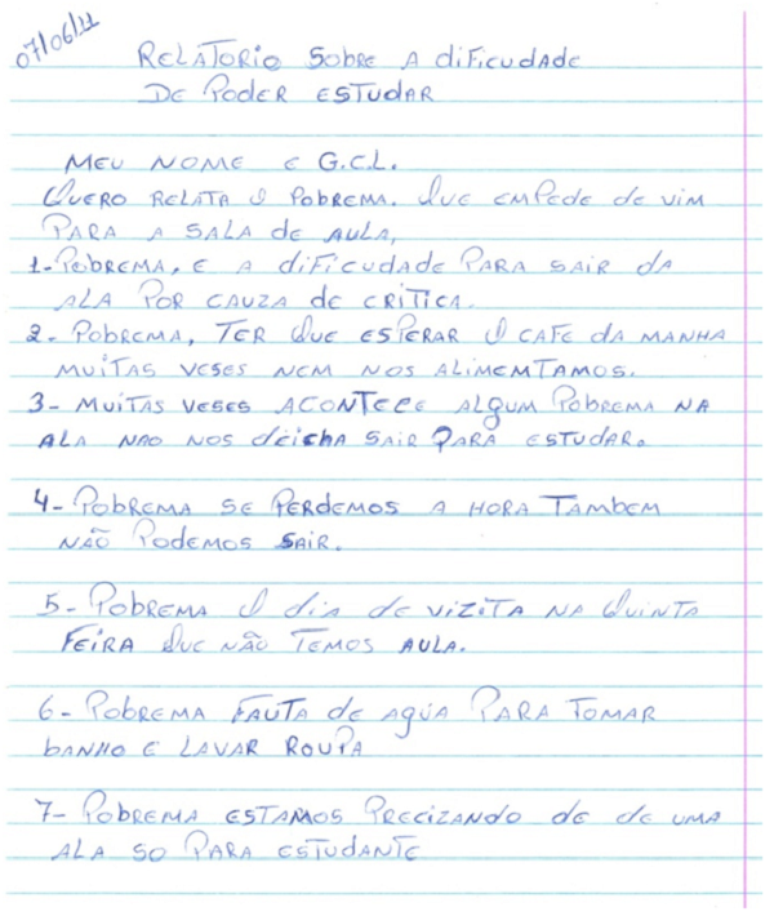 07/06/11
RELATORIO SOBRE A dificudade
DE PODER ESTUDAR
MEU NOME E G.C.L.
QUERO RELATA O POBREMA. QUE EMPEDE de VIM
PARA A SALA de AULA,
1- POBREMA, E A dificudade PARA SAIR dA
ALA POR CAUZA de CRITICA.
2- POBREMA, TER QUE ESPERAR O CAFE dA MANHA
MUITAS VESES NEM NOS ALIMEMTAMOS.
3- MUITAS VESES ACONTECE ALGUM POBREMA NA
ALA NAO NOS deicha SAIR PARA ESTUDAR.
4- POBREMA SE PERDEMOS A HORA TAMbEM
NÃO PODEMOS SAIR.
5- POBREMA O dia de VIZITA NA QUINTA
FEIRA QUE NÃO TEMOS AULA.
6- POBREMA FAUTA de AGUA PARA TOMAR
bANHO E LAVAR ROUPA
7- POBREMA ESTAMOS PRECIZANdo de de UMA
ALA SO PARA ESTUDANTE